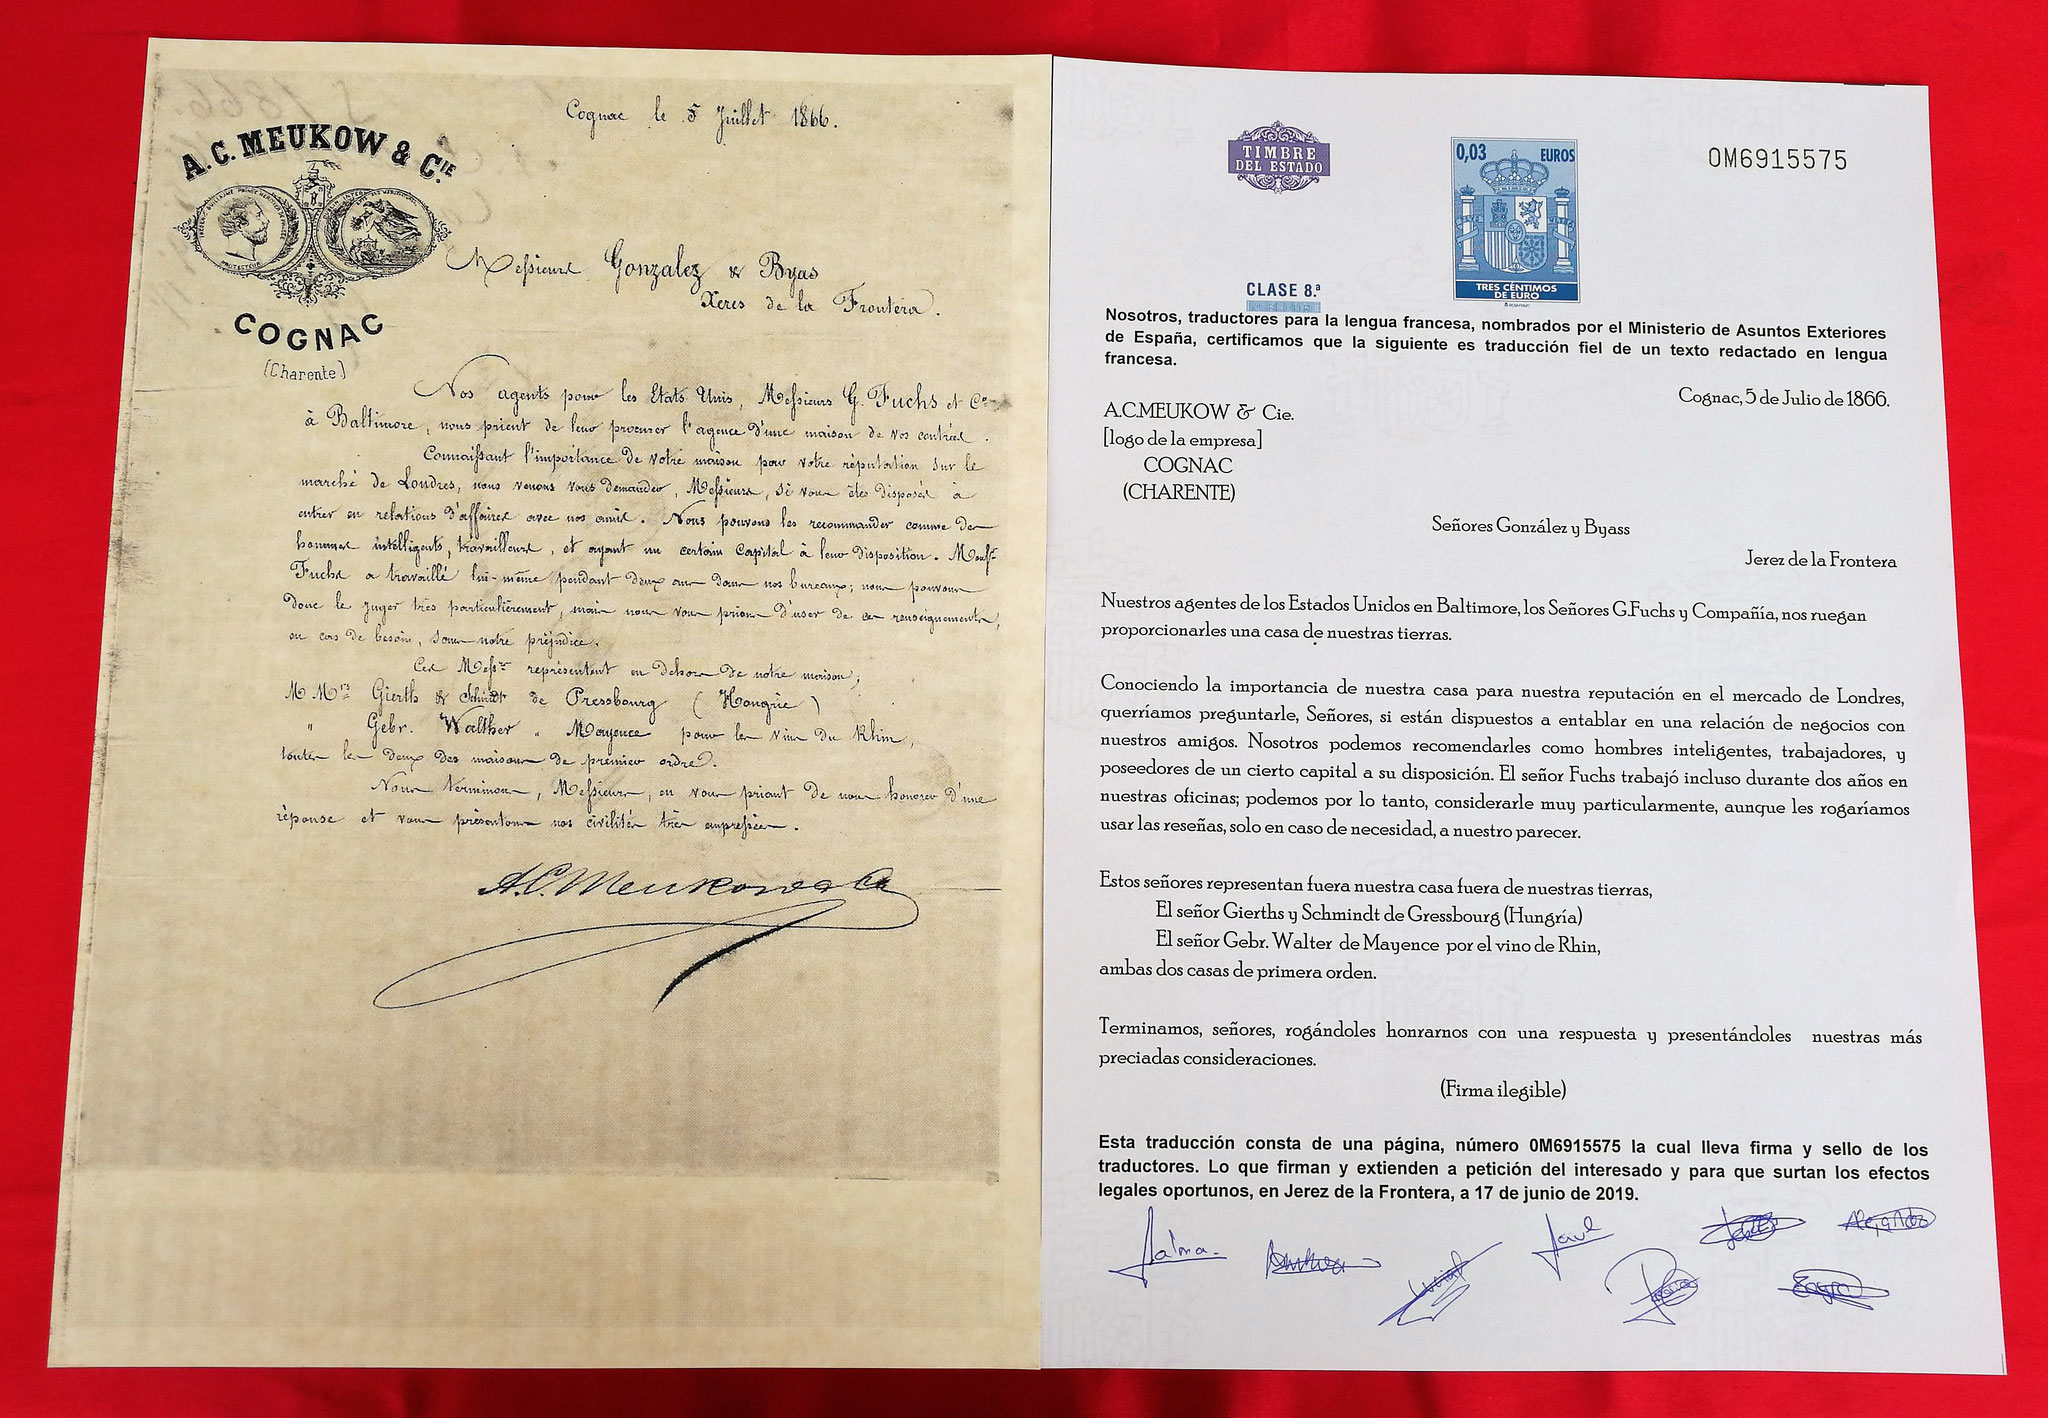 Cognac le 5 Juillet 1866.
A. C. MEUKOW & CIE
FREDERIC GUILLAUME PRINCE
PROTECTEUR
COGNAC
(Charente)
Messieurs Gonzalez & Byas
Xeres de la Frontera.
Nos agents pour les Etats Unis, Messieurs G. Fuchs et Cie
à Baltimore, nous prient de leur procurer l'agence d'une maison de vos contrées.
Connaissant l'importance de votre maison par votre réputation sur le
marché de Londres, nous venons vous demander, Messieurs, si vous êtes disposés à
entrer en relations d'affaires avec nos amis. Nous pouvons les recommander comme des
hommes intelligents, travailleurs, et ayant un certain capital à leur disposition. Monsr
Fuchs a travaillé lui-même pendant deux ans dans nos bureaux; nous pouvons
donc le juger très particulièrement, mais nous vous prions d'user de ces renseignements,
en cas de besoin, sans notre préjudice.
Ces Messrs représentent en dehors de notre maison;
M Mrs Gierth & Schmidt de Pressbourg (Hongrie)
" Gebr. Walther " Mayence pour les vins du Rhin,
toutes les deux des maisons de premier ordre.
Nous terminons, Messieurs, en vous priant de nous honorer d'une
réponse et vous présentons nos civilités très empressées.
A. C. Meukow & Co
TIMBRE
DEL ESTADO
0,03 EUROS
TRES CÉNTIMOS
DE EURO
0M6915575
CLASE 8.ª
Nosotros, traductores para la lengua francesa, nombrados por el Ministerio de Asuntos Exteriores
de España, certificamos que la siguiente es traducción fiel de un texto redactado en lengua
francesa.
Cognac, 5 de Julio de 1866.
A.C.MEUKOW & Cie.
[logo de la empresa]
COGNAC
(CHARENTE)
Señores González y Byass
Jerez de la Frontera
Nuestros agentes de los Estados Unidos en Baltimore, los Señores G.Fuchs y Compañía, nos ruegan
proporcionarles una casa de nuestras tierras.
Conociendo la importancia de nuestra casa para nuestra reputación en el mercado de Londres,
querríamos preguntarle, Señores, si están dispuestos a entablar en una relación de negocios con
nuestros amigos. Nosotros podemos recomendarles como hombres inteligentes, trabajadores, y
poseedores de un cierto capital a su disposición. El señor Fuchs trabajó incluso durante dos años en
nuestras oficinas; podemos por lo tanto, considerarle muy particularmente, aunque les rogaríamos
usar las reseñas, solo en caso de necesidad, a nuestro parecer.
Estos señores representan fuera nuestra casa fuera de nuestras tierras,
El señor Gierths y Schmindt de Gressbourg (Hungría)
El señor Gebr. Walter de Mayence por el vino de Rhin,
ambas dos casas de primera orden.
Terminamos, señores, rogándoles honrarnos con una respuesta y presentándoles nuestras más
preciadas consideraciones.
(Firma ilegible)
Esta traducción consta de una página, número 0M6915575 la cual lleva firma y sello de los
traductores. Lo que firman y extienden a petición del interesado y para que surtan los efectos
legales oportunos, en Jerez de la Frontera, a 17 de junio de 2019.